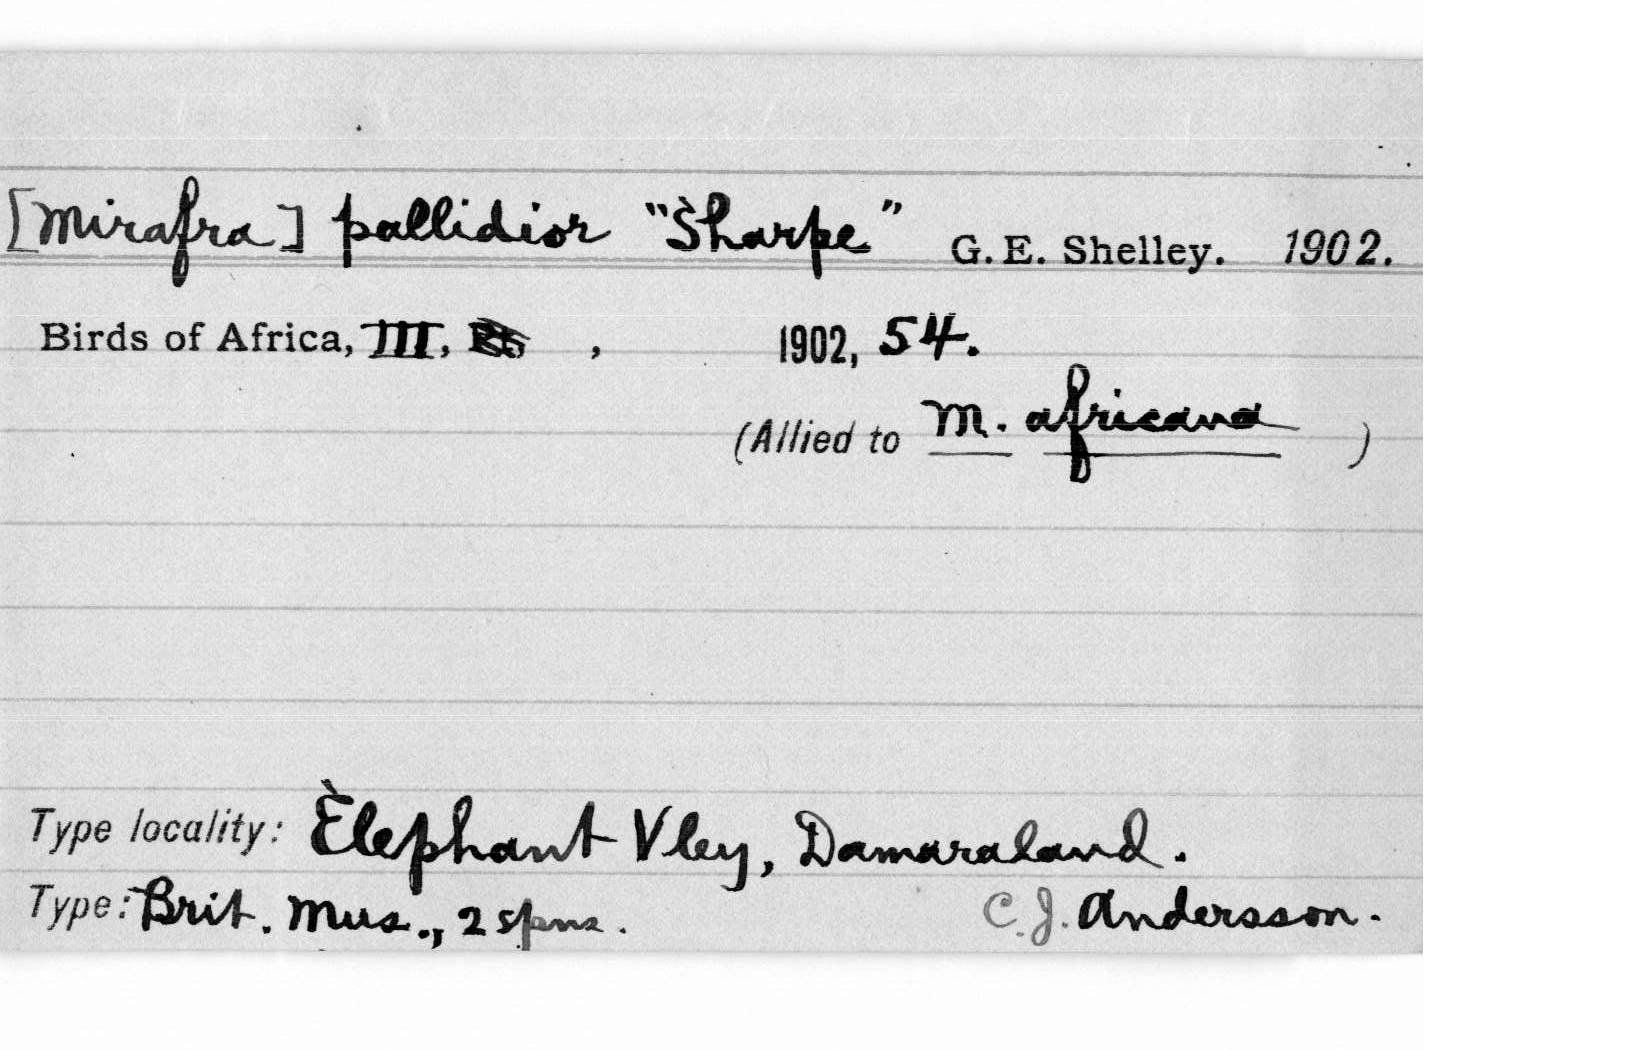 [Mirafra] pallidior "Sharpe" G. E. Shelley. 1902.
Birds of Africa, III, , 1902, 54.
(Allied to M. africana )
Type locality: Elephant Vley, Damaraland.
Type: Brit. Mus., 2 spns. C. J. Andersson.